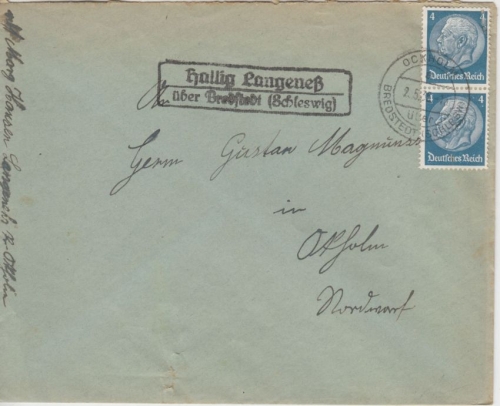 4
Deutsches Reich
4
Deutsches Reich
OCKHOLM
2.5.3
über
BREDSTEDT
Hallig Langeneß
über Bredstedt (Schleswig)
An
Herrn Gustav Magnussen
in
Ockholm
Nordwarf
Hansen Langeneß